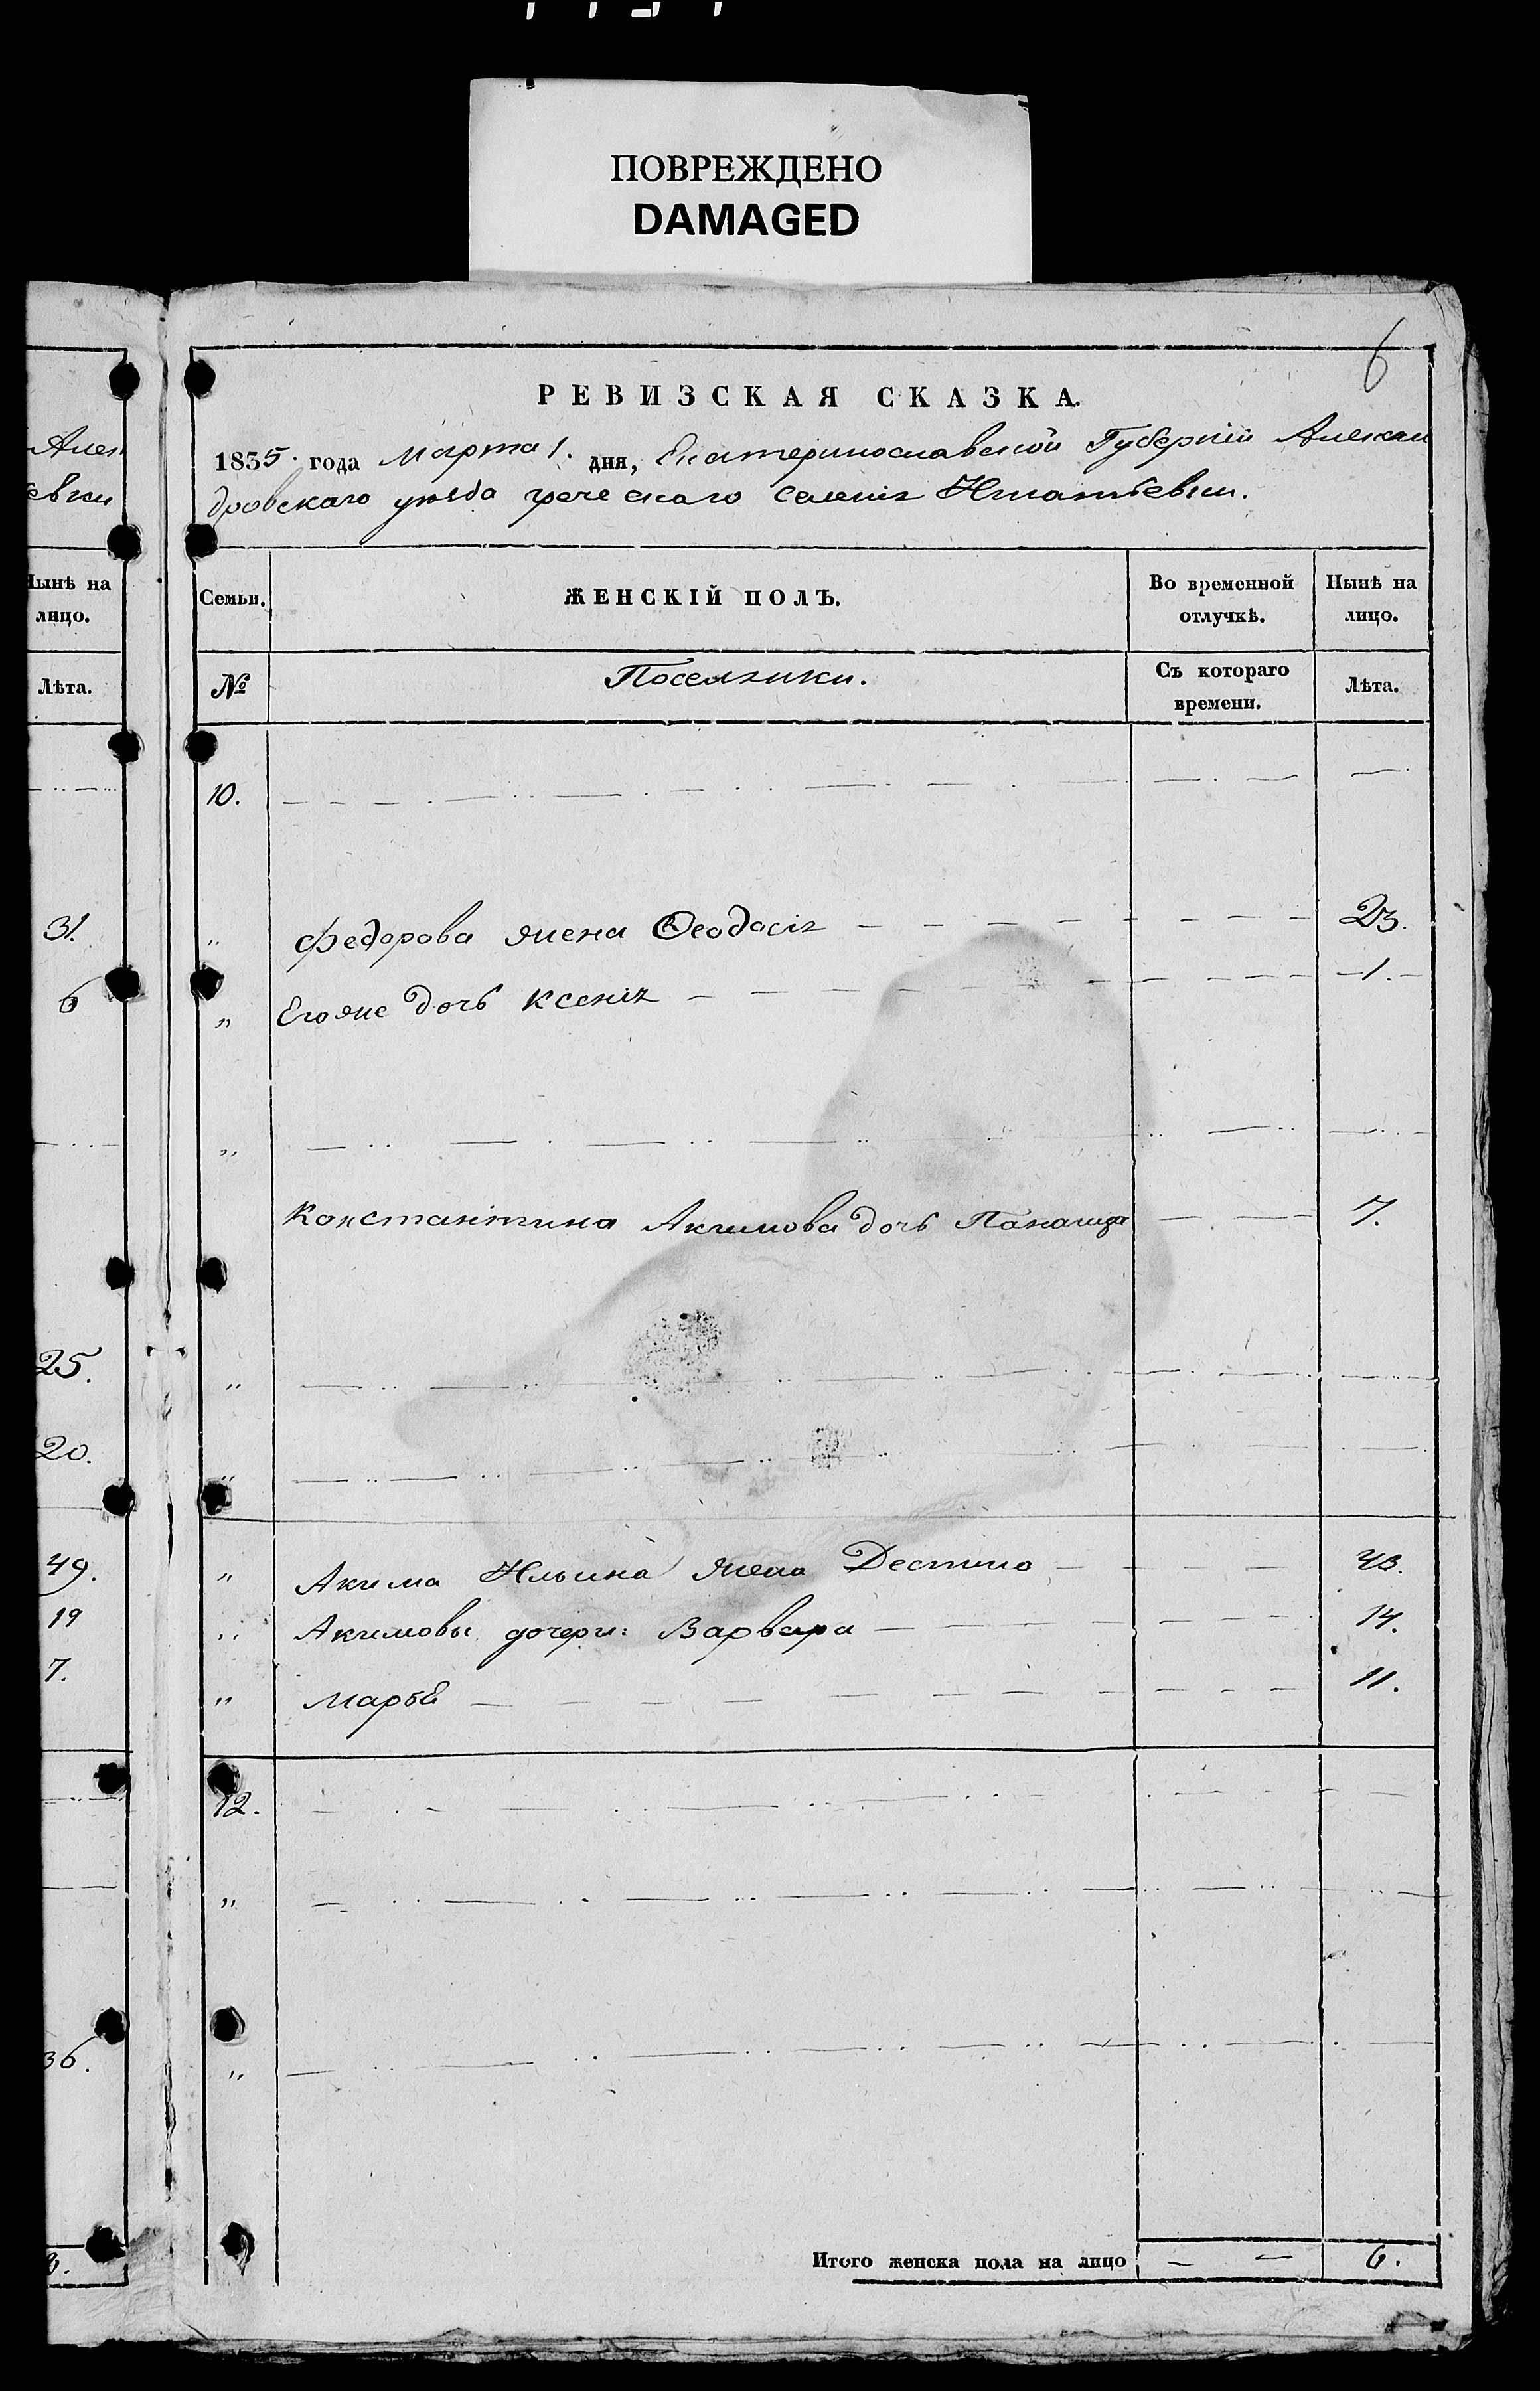 ПОВРЕЖДЕНО
DAMAGED
6
РЕВИЗСКАЯ СКАЗКА.
1835. года Марта 1. дня, Екатеринославской Губернии Алексан
дровскаго уѣзда греческаго селенія Игнатьевки.
Семьи. ЖЕНСКІЙ ПОЛЪ. Во временной отлучкѣ. Нынѣ на лицо.
№ Поселяики. Съ котораго времени. Лѣта.
10.
„ Федорова жена Ѳеодосія 23.
„ Егоже дочь Ксенія 1.
„
Константина Акимова дочь 7.
„
„
„ Акима Ильина жена 43.
„ Акимовы дочери: Варвара 14.
„ Марья 11.
12.
„
„
Итого женска пола на лицо 6.
Алек
евки
Нынѣ на
лицо.
Лѣта.
31.
6
25.
20.
49.
19
7.
36.